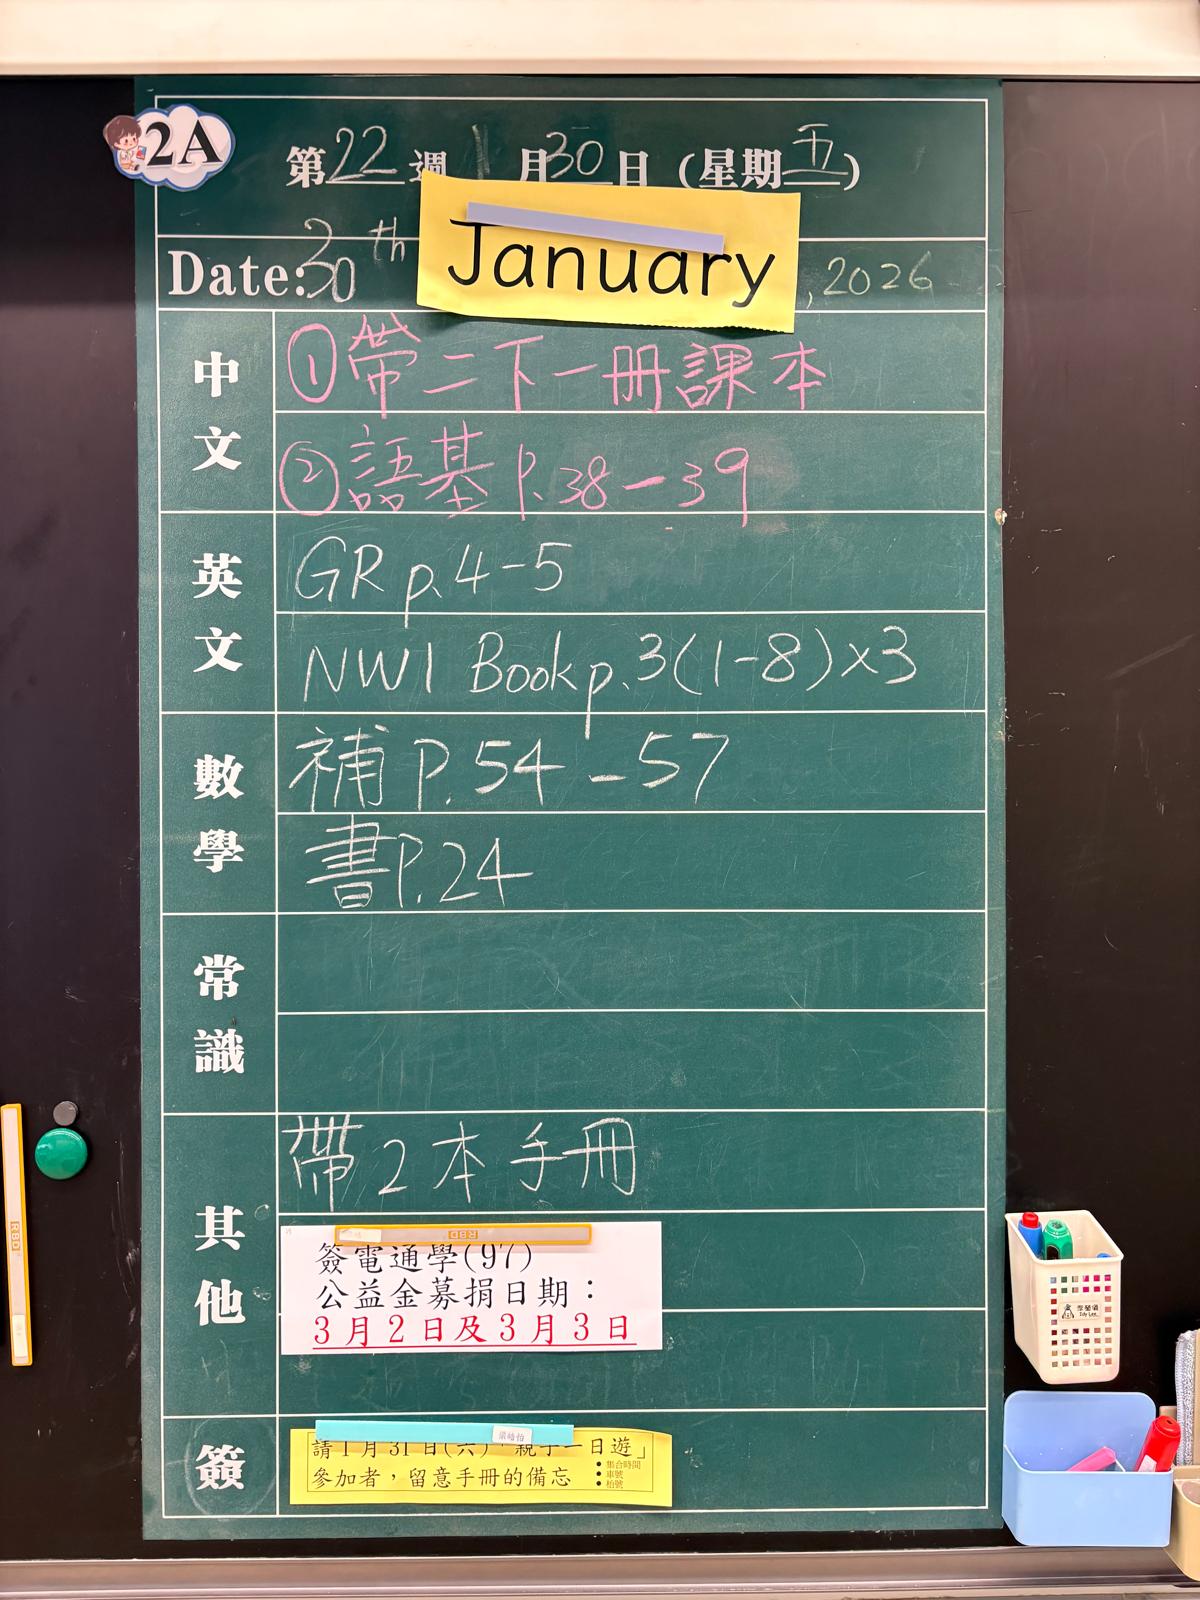 2A
第22週 1月30日（星期五）
Date: 30th January, 2026
中文
①帶二下一冊課本
②語基P.38-39
英文
GR p.4-5
NW1 Book p.3(1-8)x3
數學
補P.54-57
書P.24
常識
其他
帶2本手冊
RBD
簽電通學(97)
公益金募捐日期：
3月2日及3月3日
簽
請1月31日(六)「親子一日遊」
參加者，留意手冊的備忘
•集合時間
•車號
•枱號
RBD